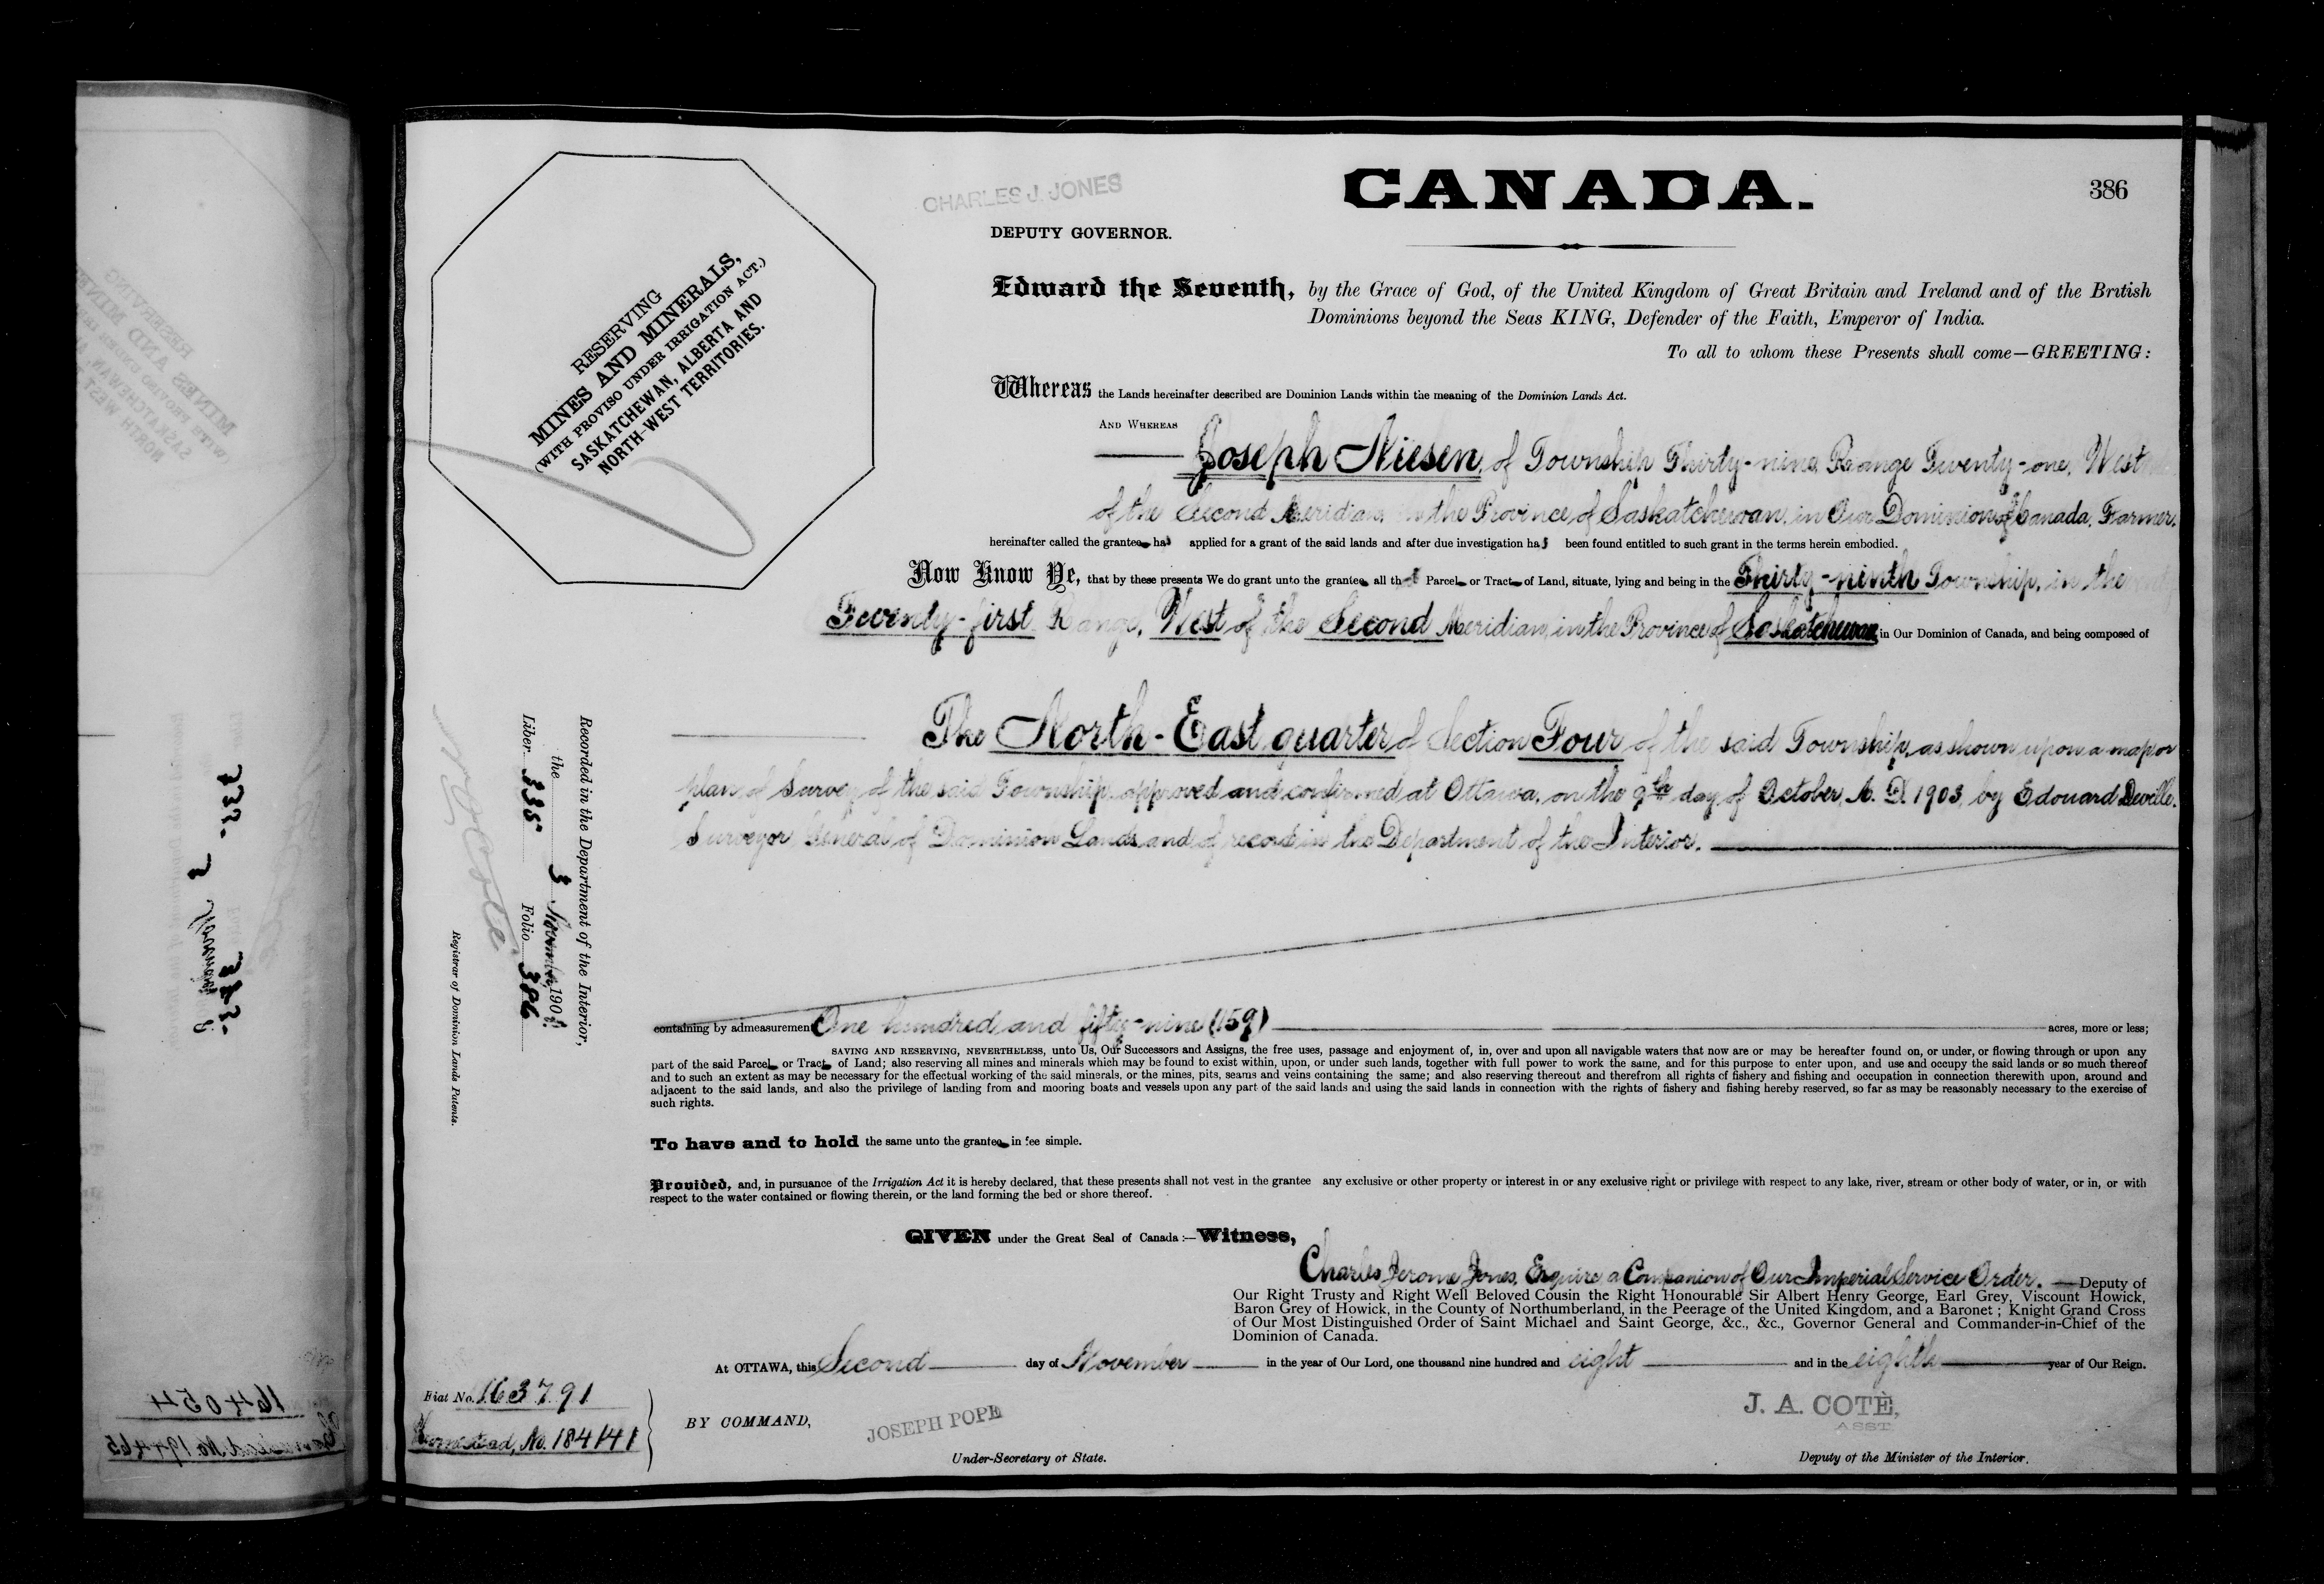 CHARLES J. JONES
CANADA.
386
DEPUTY GOVERNOR.
RESERVING
MINES AND MINERALS,
(WITH PROVISO UNDER IRRIGATION ACT.)
SASKATCHEWAN, ALBERTA AND
NORTH-WEST TERRITORIES.
Edward the Seventh, by the Grace of God, of the United Kingdom of Great Britain and Ireland and of the British
Dominions beyond the Seas KING, Defender of the Faith, Emperor of India.
To all to whom these Presents shall come—GREETING:
Whereas the Lands hereinafter described are Dominion Lands within the meaning of the Dominion Lands Act.
AND WHEREAS
Joseph Niesen, of Township Thirty-nine, Range Twenty-one, West
of the Second Meridian, in the Province of Saskatchewan, in Our Dominion of Canada, Farmer,
hereinafter called the grantee has applied for a grant of the said lands and after due investigation has been found entitled to such grant in the terms herein embodied.
Now Know Ye, that by these presents We do grant unto the grantee all that Parcel or Tract of Land, situate, lying and being in the Thirty-ninth Township, in the
Twenty-first Range, West of the Second Meridian, in the Province of Saskatchewan in Our Dominion of Canada, and being composed of
The North-East quarter of Section Four of the said Township, as shown upon a map or
plan of Survey of the said Township, approved and confirmed at Ottawa, on the 9th day of October, A. D. 1903, by Edouard Deville,
Surveyor General of Dominion Lands and of record in the Department of the Interior.
containing by admeasurement One hundred and fifty-nine (159) acres, more or less;
SAVING AND RESERVING, NEVERTHELESS, unto Us, Our Successors and Assigns, the free uses, passage and enjoyment of, in, over and upon all navigable waters that now are or may be hereafter found on, or under, or flowing through or upon any
part of the said Parcel or Tract of Land; also reserving all mines and minerals which may be found to exist within, upon, or under such lands, together with full power to work the same, and for this purpose to enter upon, and use and occupy the said lands or so much thereof
and to such an extent as may be necessary for the effectual working of the said minerals, or the mines, pits, seams and veins containing the same; and also reserving thereout and therefrom all rights of fishery and fishing and occupation in connection therewith upon, around and
adjacent to the said lands, and also the privilege of landing from and mooring boats and vessels upon any part of the said lands and using the said lands in connection with the rights of fishery and fishing hereby reserved, so far as may be reasonably necessary to the exercise of
such rights.
To have and to hold the same unto the grantee in fee simple.
Provided, and, in pursuance of the Irrigation Act it is hereby declared, that these presents shall not vest in the grantee any exclusive or other property or interest in or any exclusive right or privilege with respect to any lake, river, stream or other body of water, or in, or with
respect to the water contained or flowing therein, or the land forming the bed or shore thereof.
GIVEN under the Great Seal of Canada:—Witness,
Charles Jerome Jones, Esquire, a Companion of Our Imperial Service Order. —Deputy of
Our Right Trusty and Right Well Beloved Cousin the Right Honourable Sir Albert Henry George, Earl Grey, Viscount Howick,
Baron Grey of Howick, in the County of Northumberland, in the Peerage of the United Kingdom, and a Baronet; Knight Grand Cross
of Our Most Distinguished Order of Saint Michael and Saint George, &c., &c., Governor General and Commander-in-Chief of the
Dominion of Canada.
At OTTAWA, this Second day of November in the year of Our Lord, one thousand nine hundred and eight and in the eighth year of Our Reign.
BY COMMAND,
JOSEPH POPE
Under-Secretary of State.
J. A. COTÈ,
ASST
Deputy of the Minister of the Interior.
Fiat No. 163791
Homestead, No. 184141
Recorded in the Department of the Interior,
the 3 November, 1908.
Liber 335 Folio 386
N O Coté
Registrar of Dominion Lands Patents.
164054